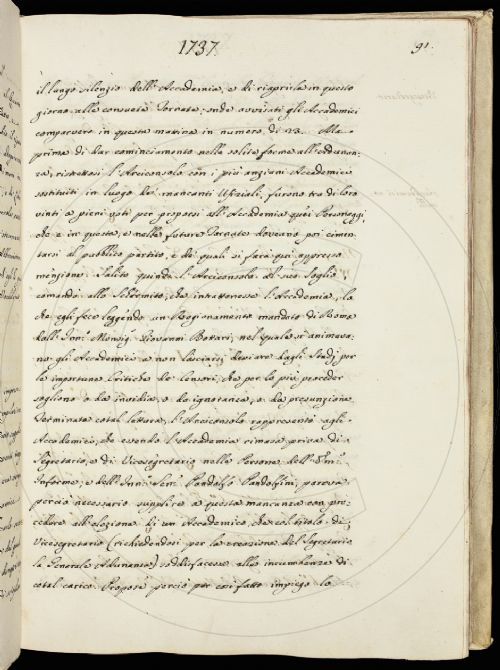 1737.
91.
il lungo silenzio dell'Accademia, e di riaprirla in questo
giorno alle consuete Tornate; onde avvisati gli Accademici
comparvero in questa mattina in numero di 23. Ma
prima di dar cominciamento nella solita forma all'Adunan-
za, ristretosi l'Arciconsolo con i più anziani Accademici
sostituiti in luogo de' mancanti Ufiziali, furono tra di loro
vinti a pieni voti per proporsi all'Accademia quei Personaggi,
che e in questa, e nelle future Tornate doveano poi cimen-
tarsi al pubblico partito, e de' quali si farà qui appresso
menzione. Salito quindi l'Arciconsolo al suo Soglio
comandò allo Schermito, che intrattenesse l'Accademia, lo
che egli fece leggendo un Ragionamento mandato di Roma
dall' Inn. Monsig. Giovanni Bottari, nel quale si animava-
no gli Accademici a non lasciarsi deviare dagli Studj per
le importune Critiche de' Censori, che per lo più proceder
sogliono o da invidia, o da ignoranza, o da presunzione.
Terminata cotal lettura, l'Arciconsolo rappresentò agli
Accademici, che essendo l'Accademia rimasa priva di
Segretario, e di Vicesegretario nelle Persone dell'
Informe, e dell' Inn. Sen. Pandolfo Pandolfini, pareva
perciò necessario supplire a questa mancanza con pro-
cedere all'elezione di un Accademico, che col titolo di
Vicesegretario (richiedendosi per la creazione del Segretario
la Generale Adunanza) soddisfacesse alle incumbenze di
cotal carico. Propose perciò per così fatto impiego lo